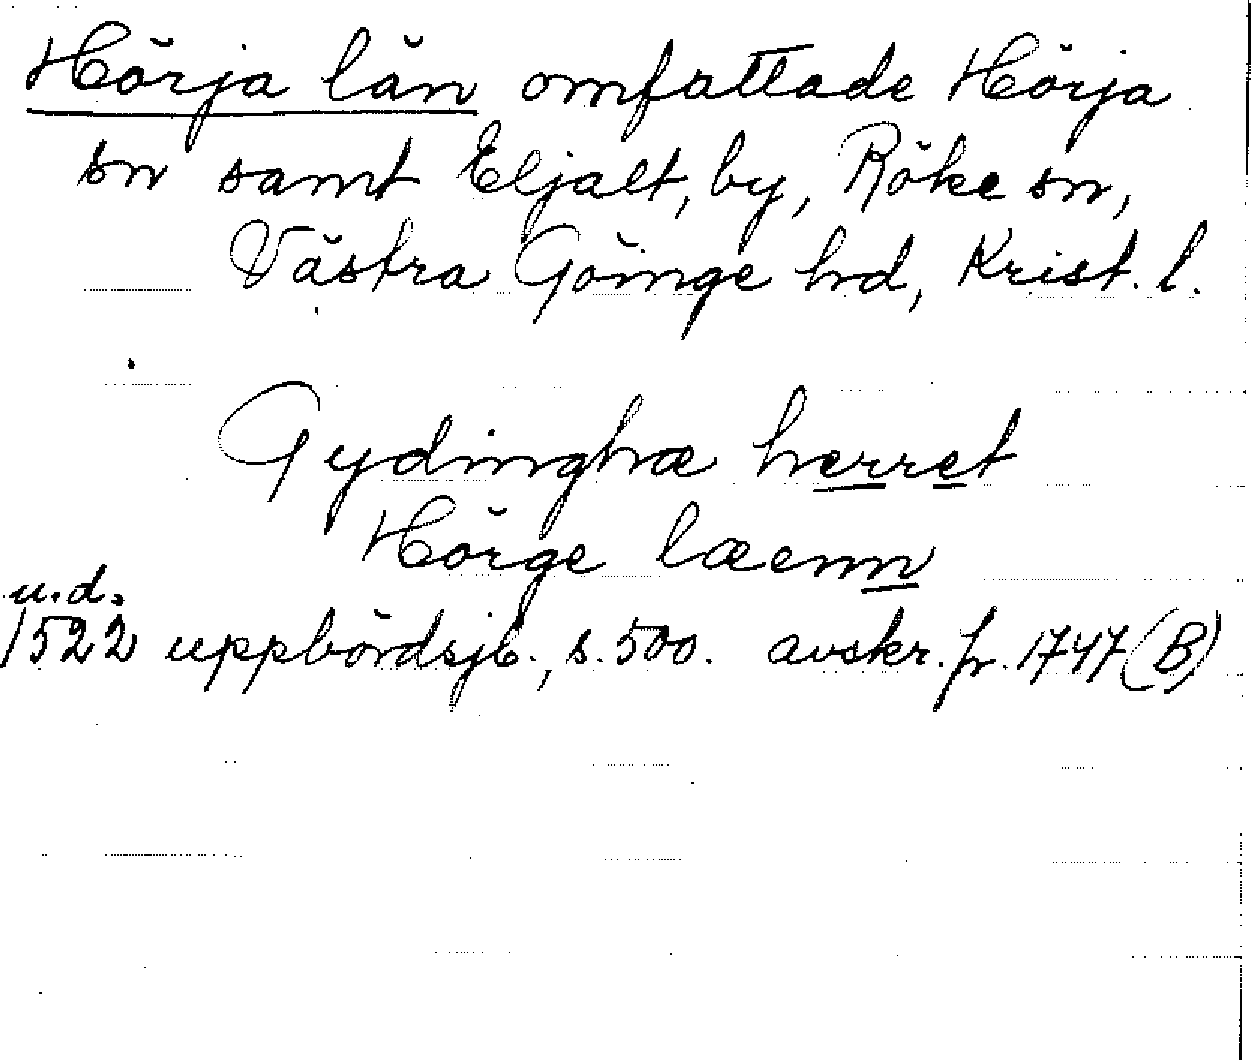 Hörja län omfattade Hörja
sn samt Eljalt, by, Röke sn,
Västra Göinge hd, Krist. l.
Gydinghæ herret
Hörge læenn
u.d.
1522 uppbördsjb., s. 500. avskr. fr. 1747 (B)